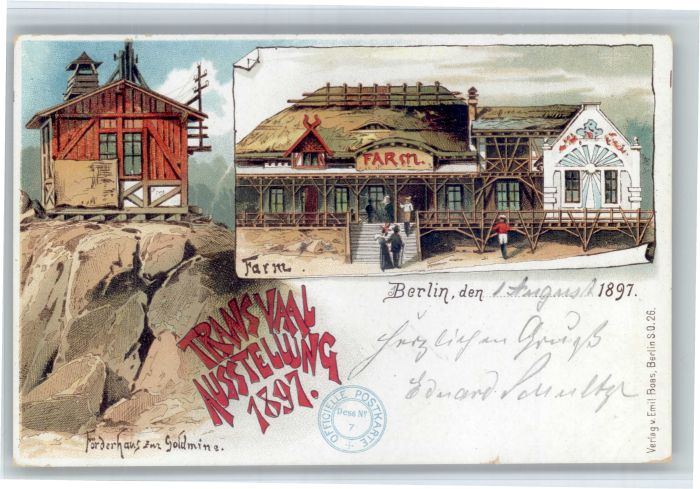 FARM.
Farm.
Berlin, den 1 August 1897.
Herzlichen Gruß
Eduard Schultze
TRANSVAAL
AUSSTELLUNG
1897.
OFFICIELLE POSTKARTE
Dess Nr
7
Förderhaus zur Goldmine.
Verlag v. Emil Baas, Berlin S.O. 26.